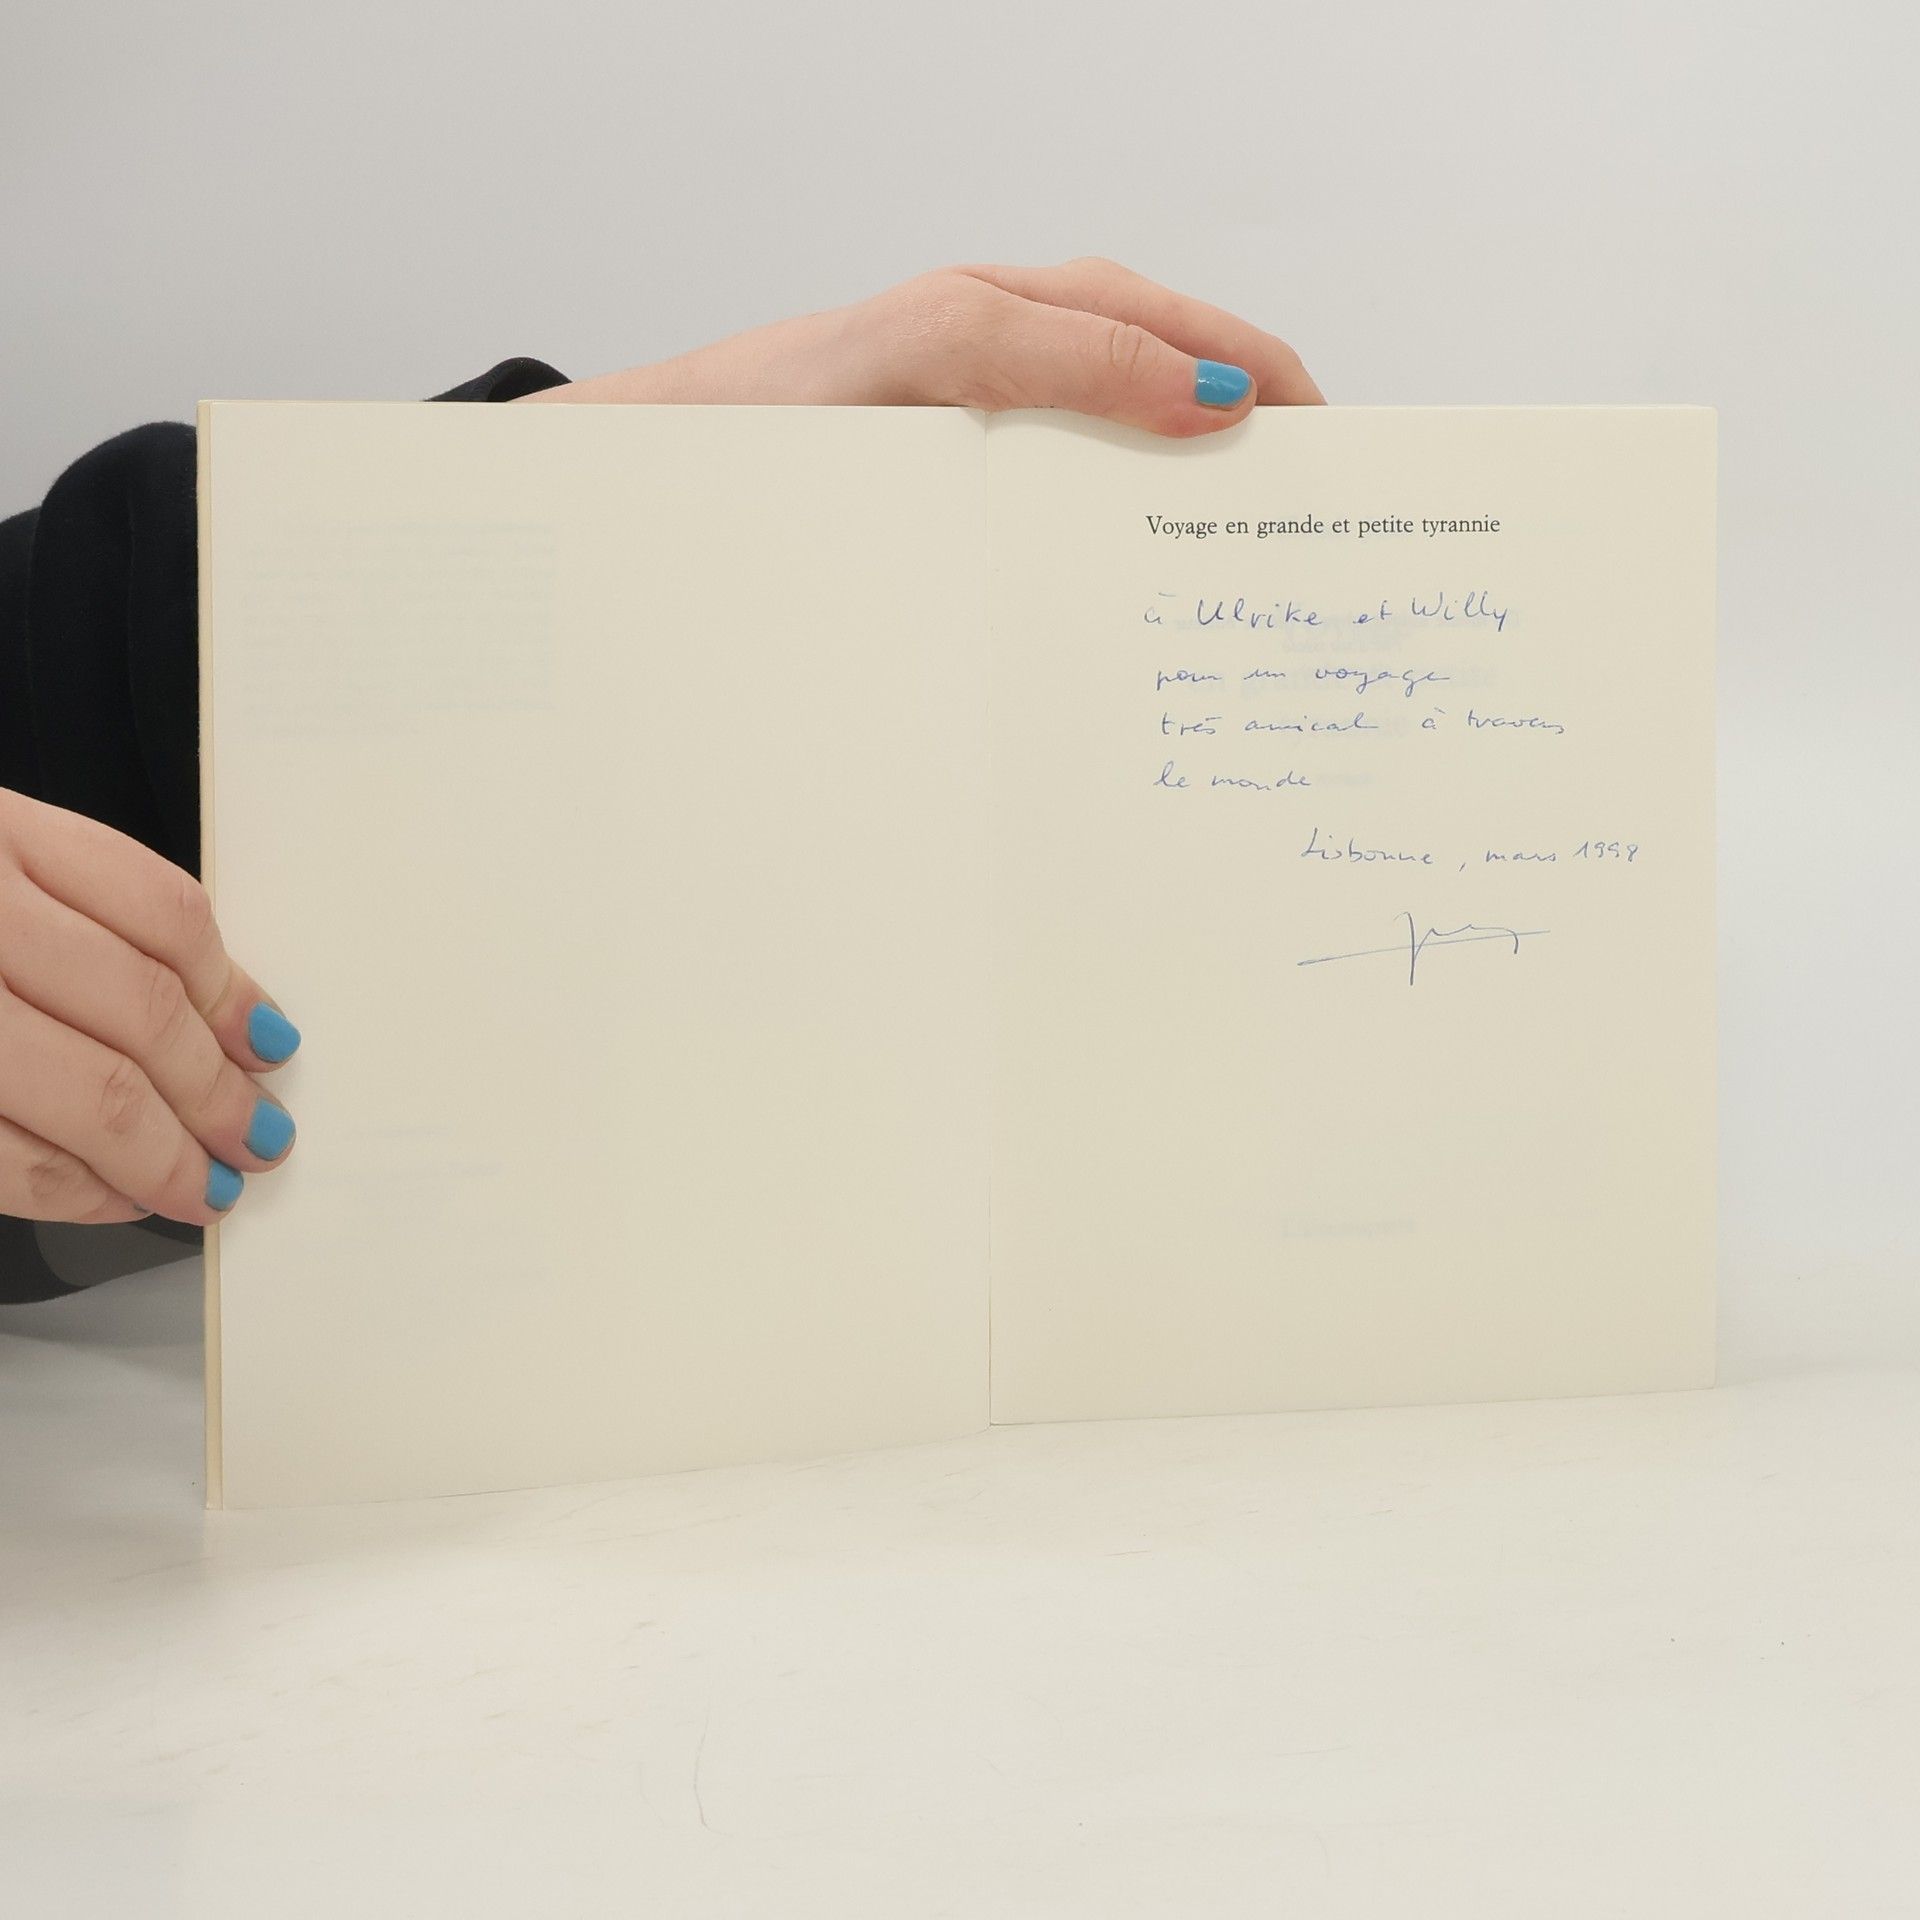 Voyage en grande et petite tyrannie
à Ulrike et Willy
pour un voyage
très amical à travers
le monde
Lisbonne, mars 1998